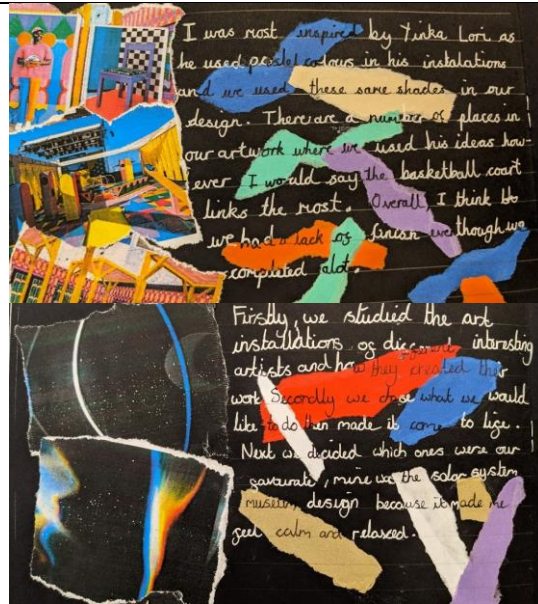 I was most inspired by Yinka Lori as
he used pastel colours in his instalations
and we used these same shades in our
design. There are a number of places in
our artwork where we used his ideas how-
ever I would say the basketball court
links the most. Overall I think
we had a lack of finish eve though we
completed alot.
Firstly, we studied the art
installations of different interesting
artists and how they created their
work Secondly we chose what we would
like to do then made it come to life.
Next we decided which ones were our
favourate, mine was the solar system
museum design because it made me
feel calm and relaxed.